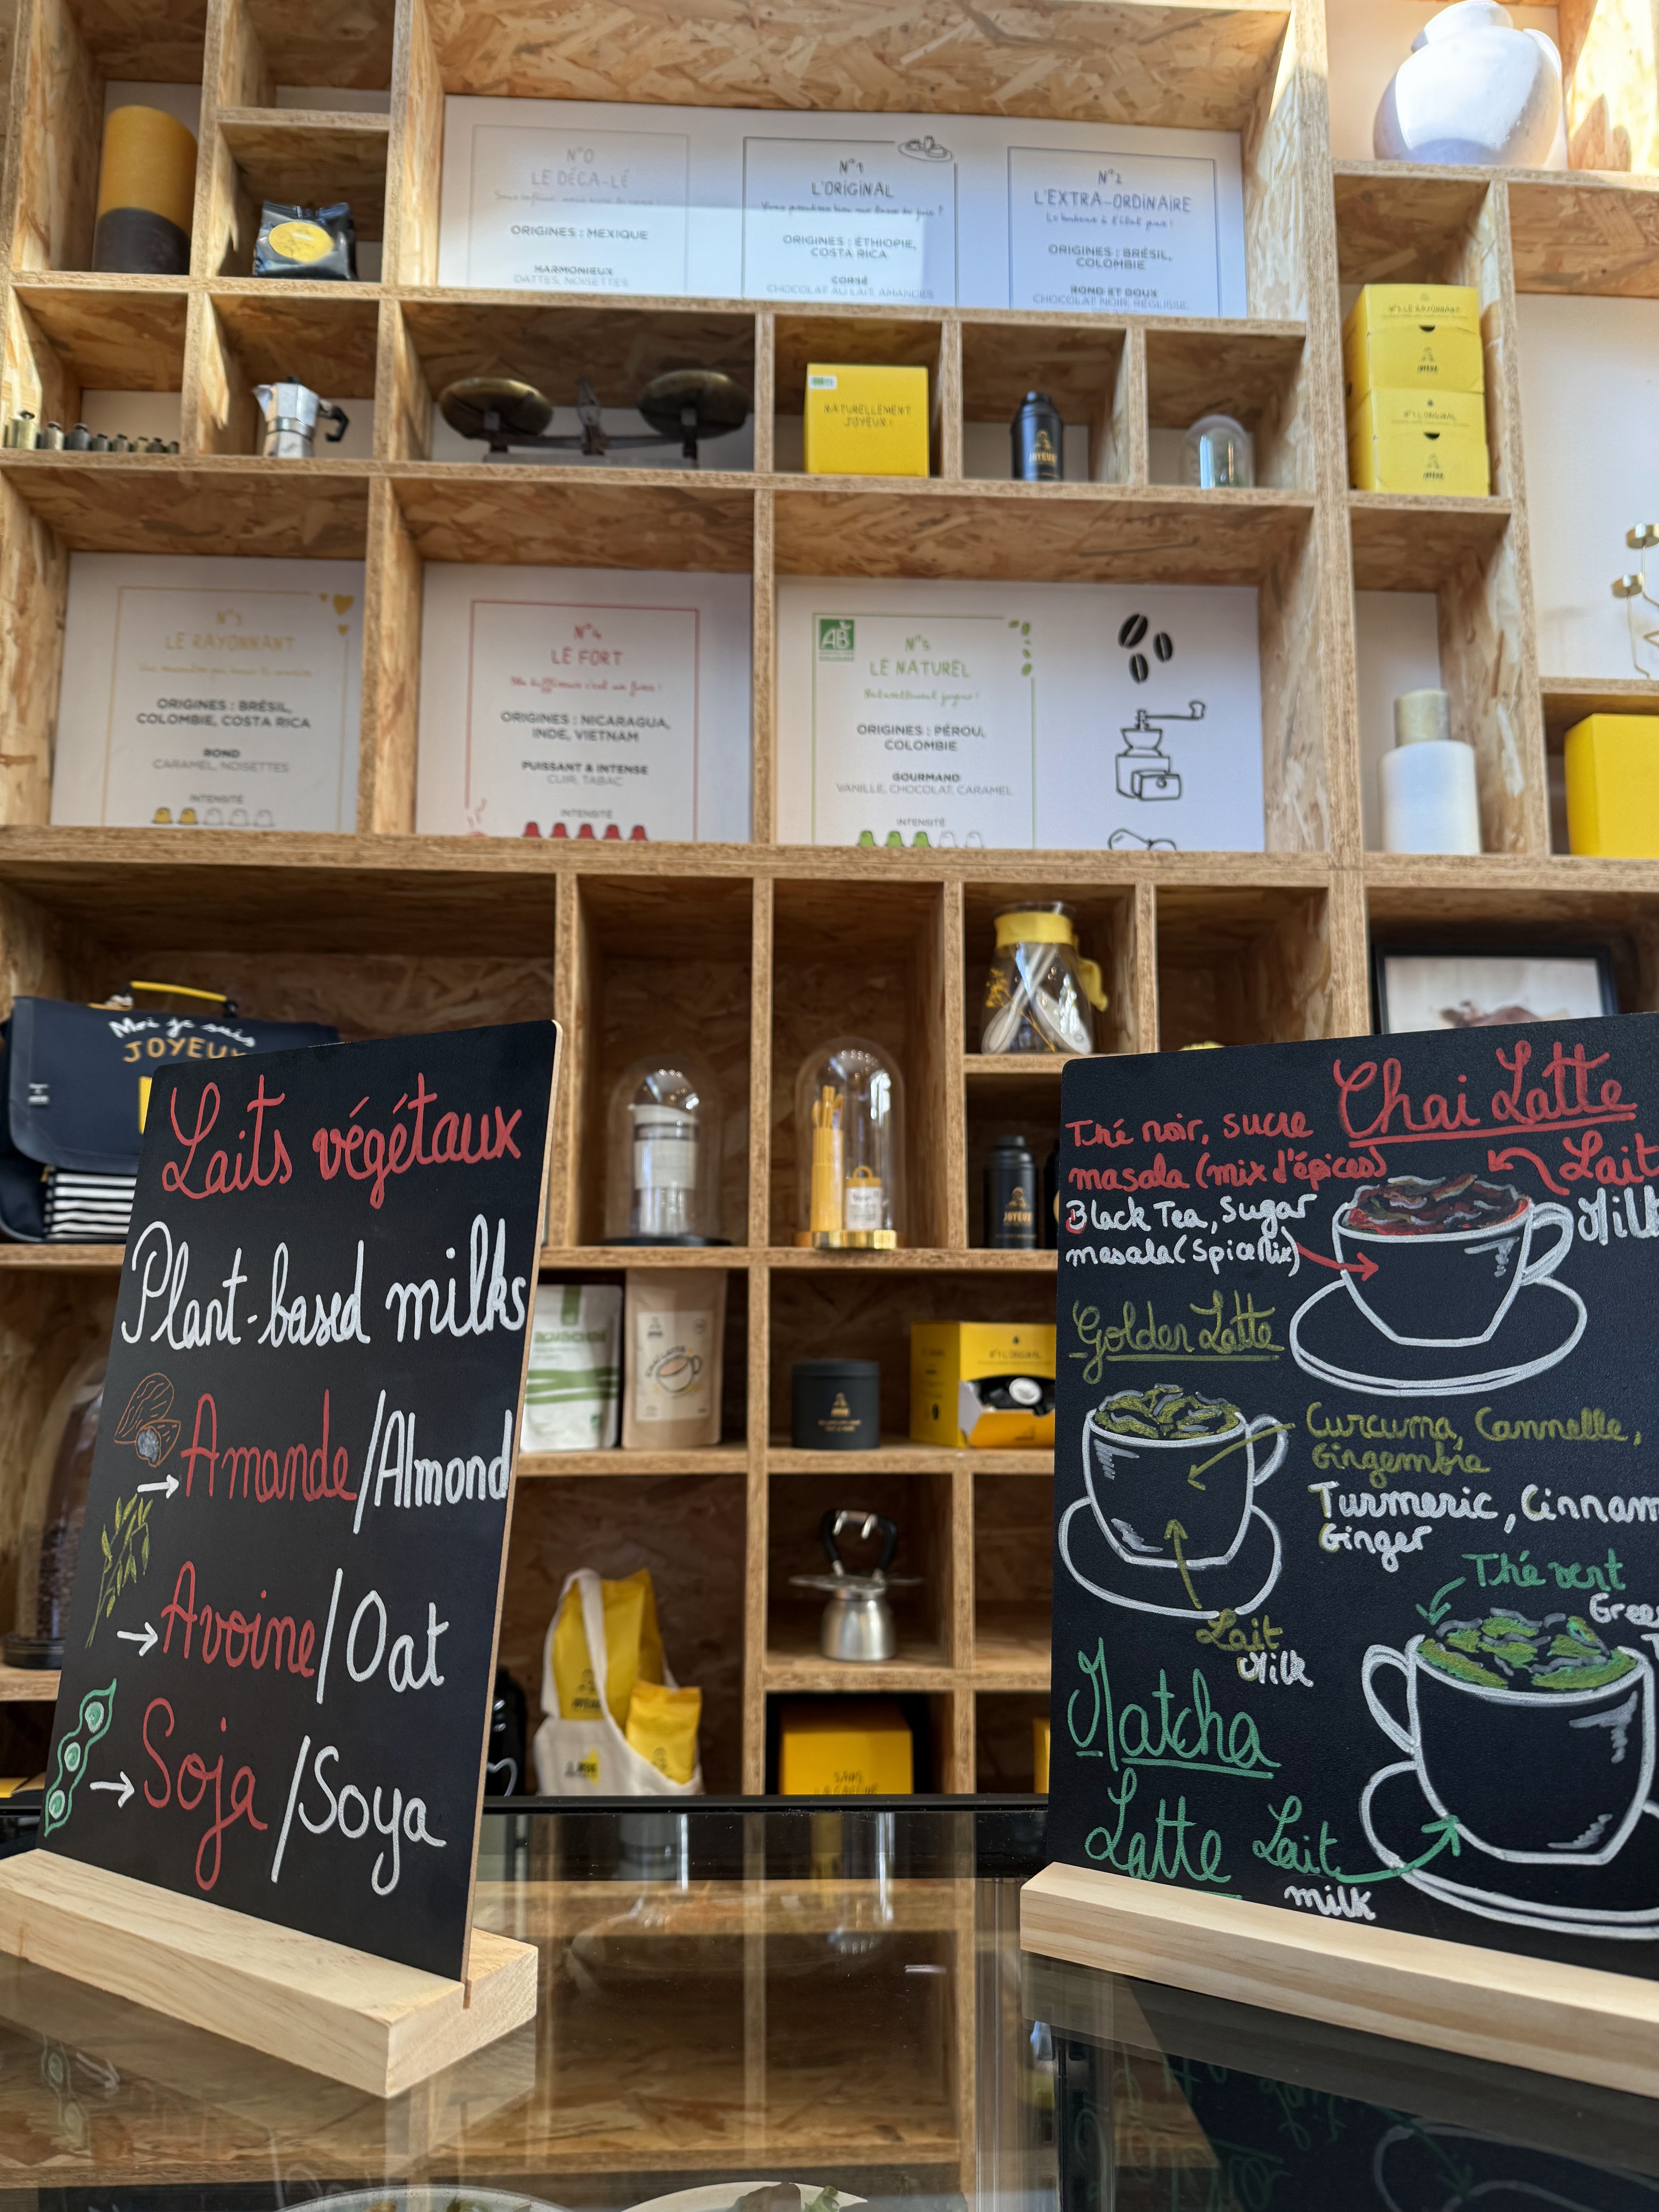 N°0
LE DÉCA-LÉ
ORIGINES : MEXIQUE
HARMONIEUX
DATTES, NOISETTES
N°1
L'ORIGINAL
ORIGINES : ÉTHIOPIE,
COSTA RICA
CORSÉ
CHOCOLAT AU LAIT, AMANDES
N°2
L'EXTRA-ORDINAIRE
Le bonheur à l'état pur !
ORIGINES : BRÉSIL,
COLOMBIE
ROND ET DOUX
CHOCOLAT NOIR, RÉGLISSE,
NATURELLEMENT
JOYEUX !
JOYEUX
N°3 LE RAYONNANT
N°1 L'ORIGINAL
N°3
LE RAYONNANT
ORIGINES : BRÉSIL,
COLOMBIE, COSTA RICA
ROND
CARAMEL, NOISETTES
INTENSITÉ
N°4
LE FORT
Ma différence c'est ma force !
ORIGINES : NICARAGUA,
INDE, VIETNAM
PUISSANT & INTENSE
CUIR, TABAC
INTENSITÉ
AB
N°5
LE NATUREL
Naturellement joyeux !
ORIGINES : PÉROU,
COLOMBIE
GOURMAND
VANILLE, CHOCOLAT, CARAMEL
INTENSITÉ
Moi je suis
JOYEUX
JOYEUX
N°1 L'ORIGINAL
CHAI LATTE
SANS
LA CAFÉINE
Laits végétaux
Plant-based milks
→ Amande/Almond
→ Avoine/Oat
→ Soja/Soya
Chai Latte
Thé noir, sucre
masala (mix d'épices)
Black Tea, Sugar
masala (Spice Mix)
Lait
Milk
Golden Latte
Curcuma, Cannelle,
Gingembre
Turmeric, Cinnam
Ginger
Lait
Milk
Thé vert
Gree
Matcha
Latte
Lait
milk